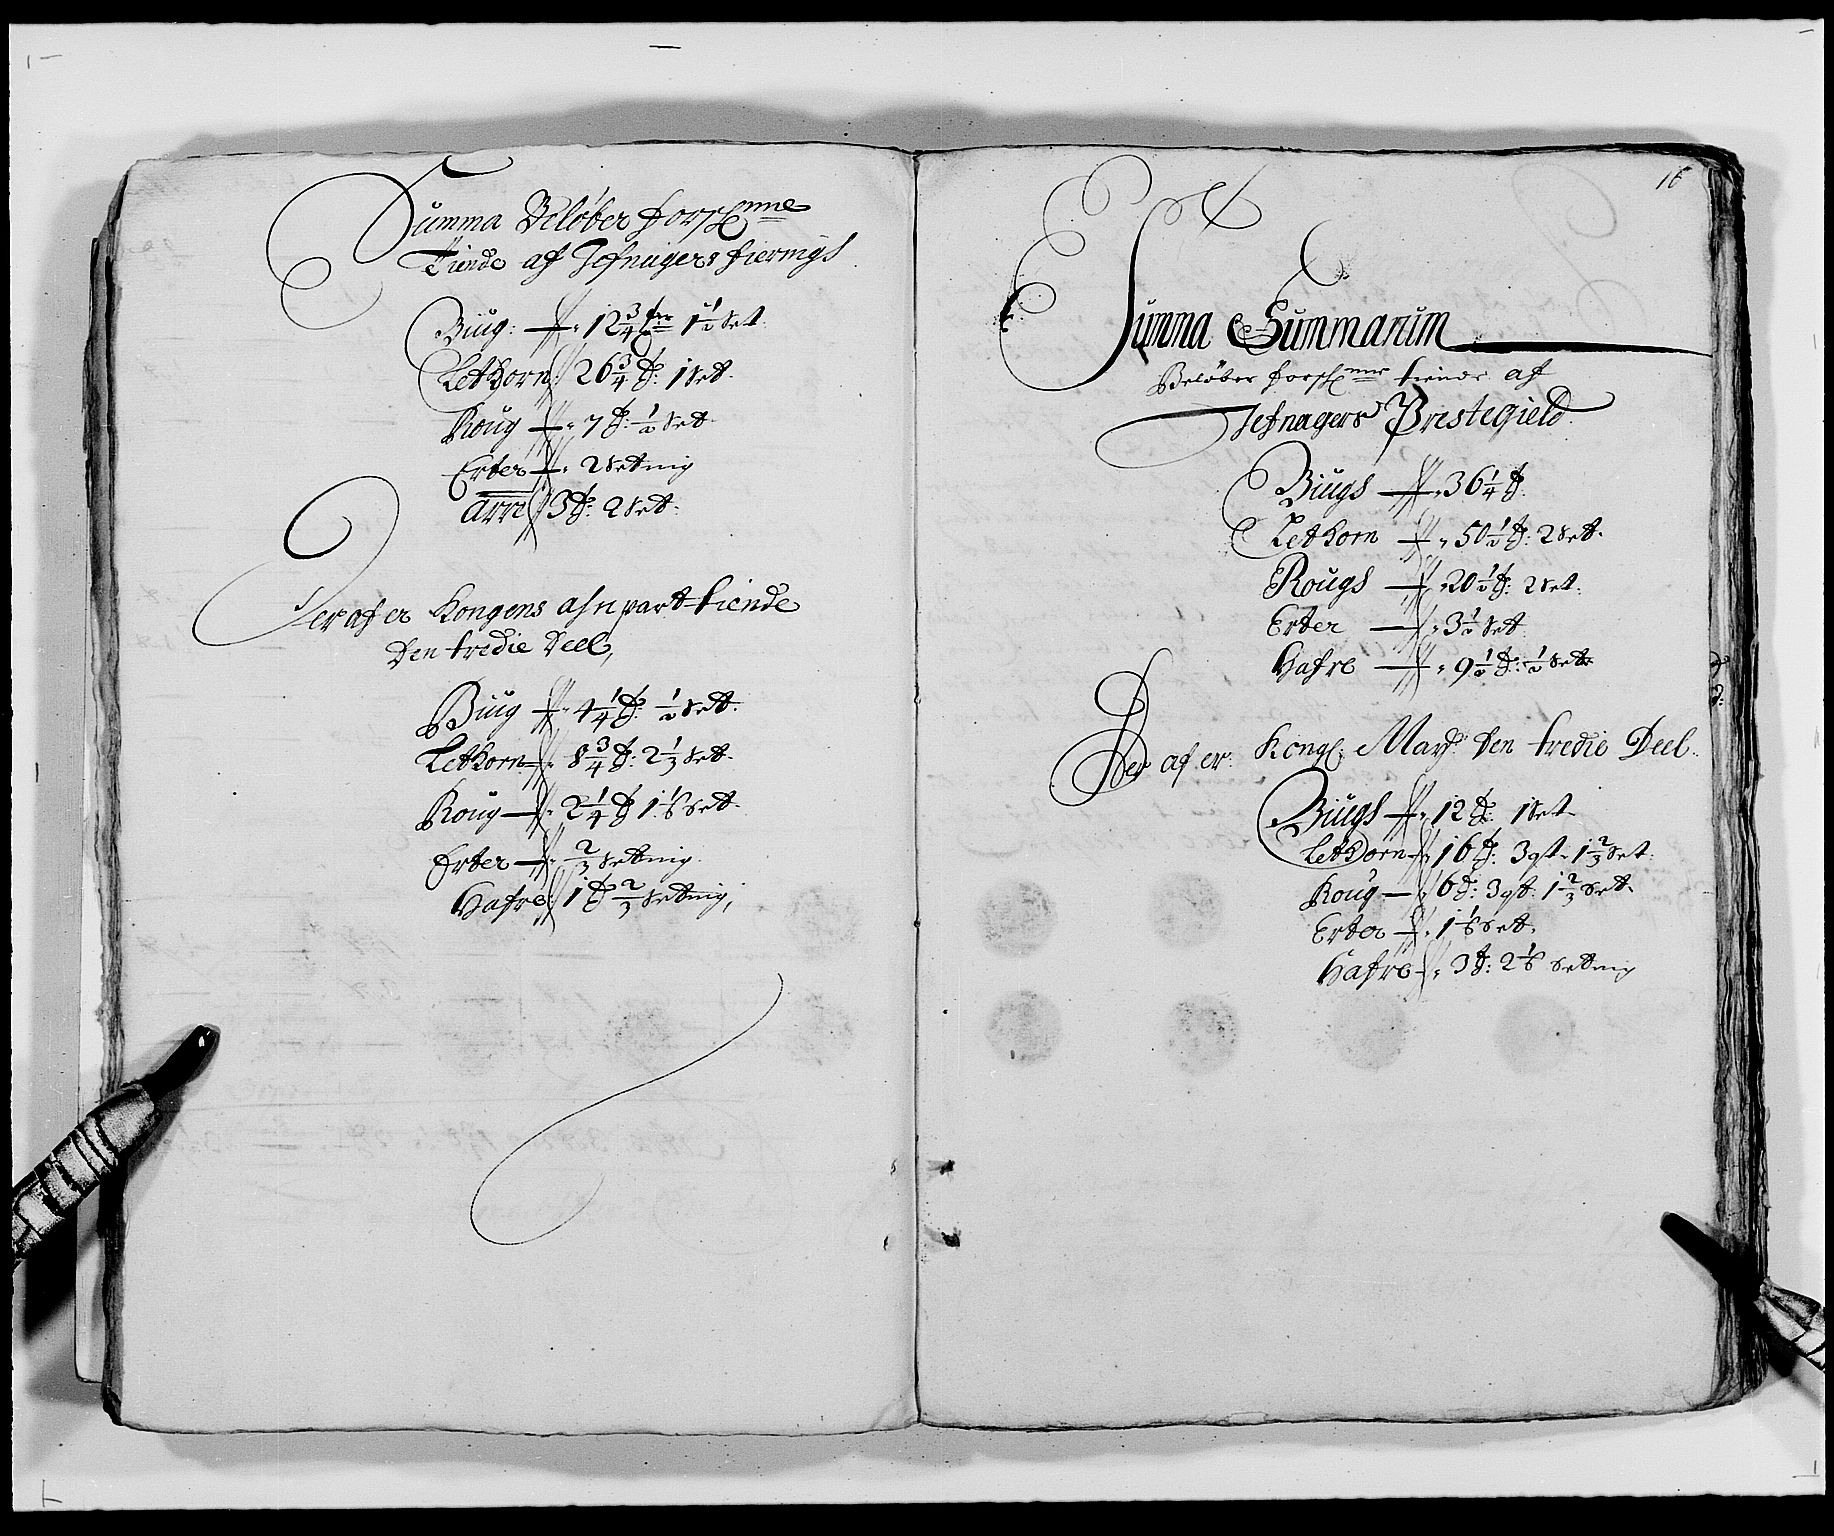 Summa Beløber forschne
Tiende af Jefnager fierings
Biug: 12 3/4 tdr 1 1/2 Set.
Letkorn 26 3/4 td: 1 Set
Roug 7 td: 1/2 Set.
Erter 2 Setnig
Arre 3 td: 2 Set:
Der af er Kongens anpart tiende
Den tredie Deel,
Biug 4 1/4 td: 1/2 Sett.
Letkorn 8 3/4 td: 2 1/3 Set.
Roug 2 1/4 td 1 1/6 Sett.
Erter 2/3 Setnig.
Hafre 1 td 2/3 Settnig,
16
Summa Summarum
Beløber forschne tiende af
Jefnagers Prestegield.
Biugs 36 1/4 td.
Letkorn 50 1/2 td: 2 Set.
Rougs 20 1/2 td: 2 Set.
Erter 3 1/2 Set
Hafre 9 1/2 td: 1/2 Set
Der af er Kongl: Mayt: Den tredie Deel.
Biugs 12 td: 1 Set
Letkorn 16 td: 3 qt 1 2/3 Set.
Roug 6 td: 3 qt: 1 2/3 Set.
Erter 1 1/6 Set.
Hafre 3 td: 2 1/6 Setnig